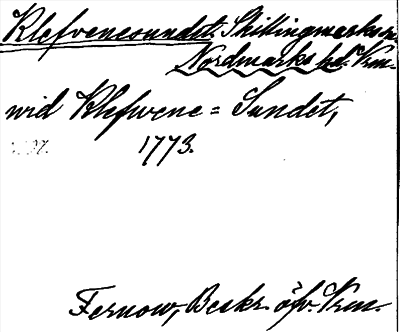 Klefvenesundet. Skillingmarks sn
Nordmarks hd. Vrm.
wid Klefwene = Sundet,
1773.
Fernow, Beskr. öfv. Vrm.